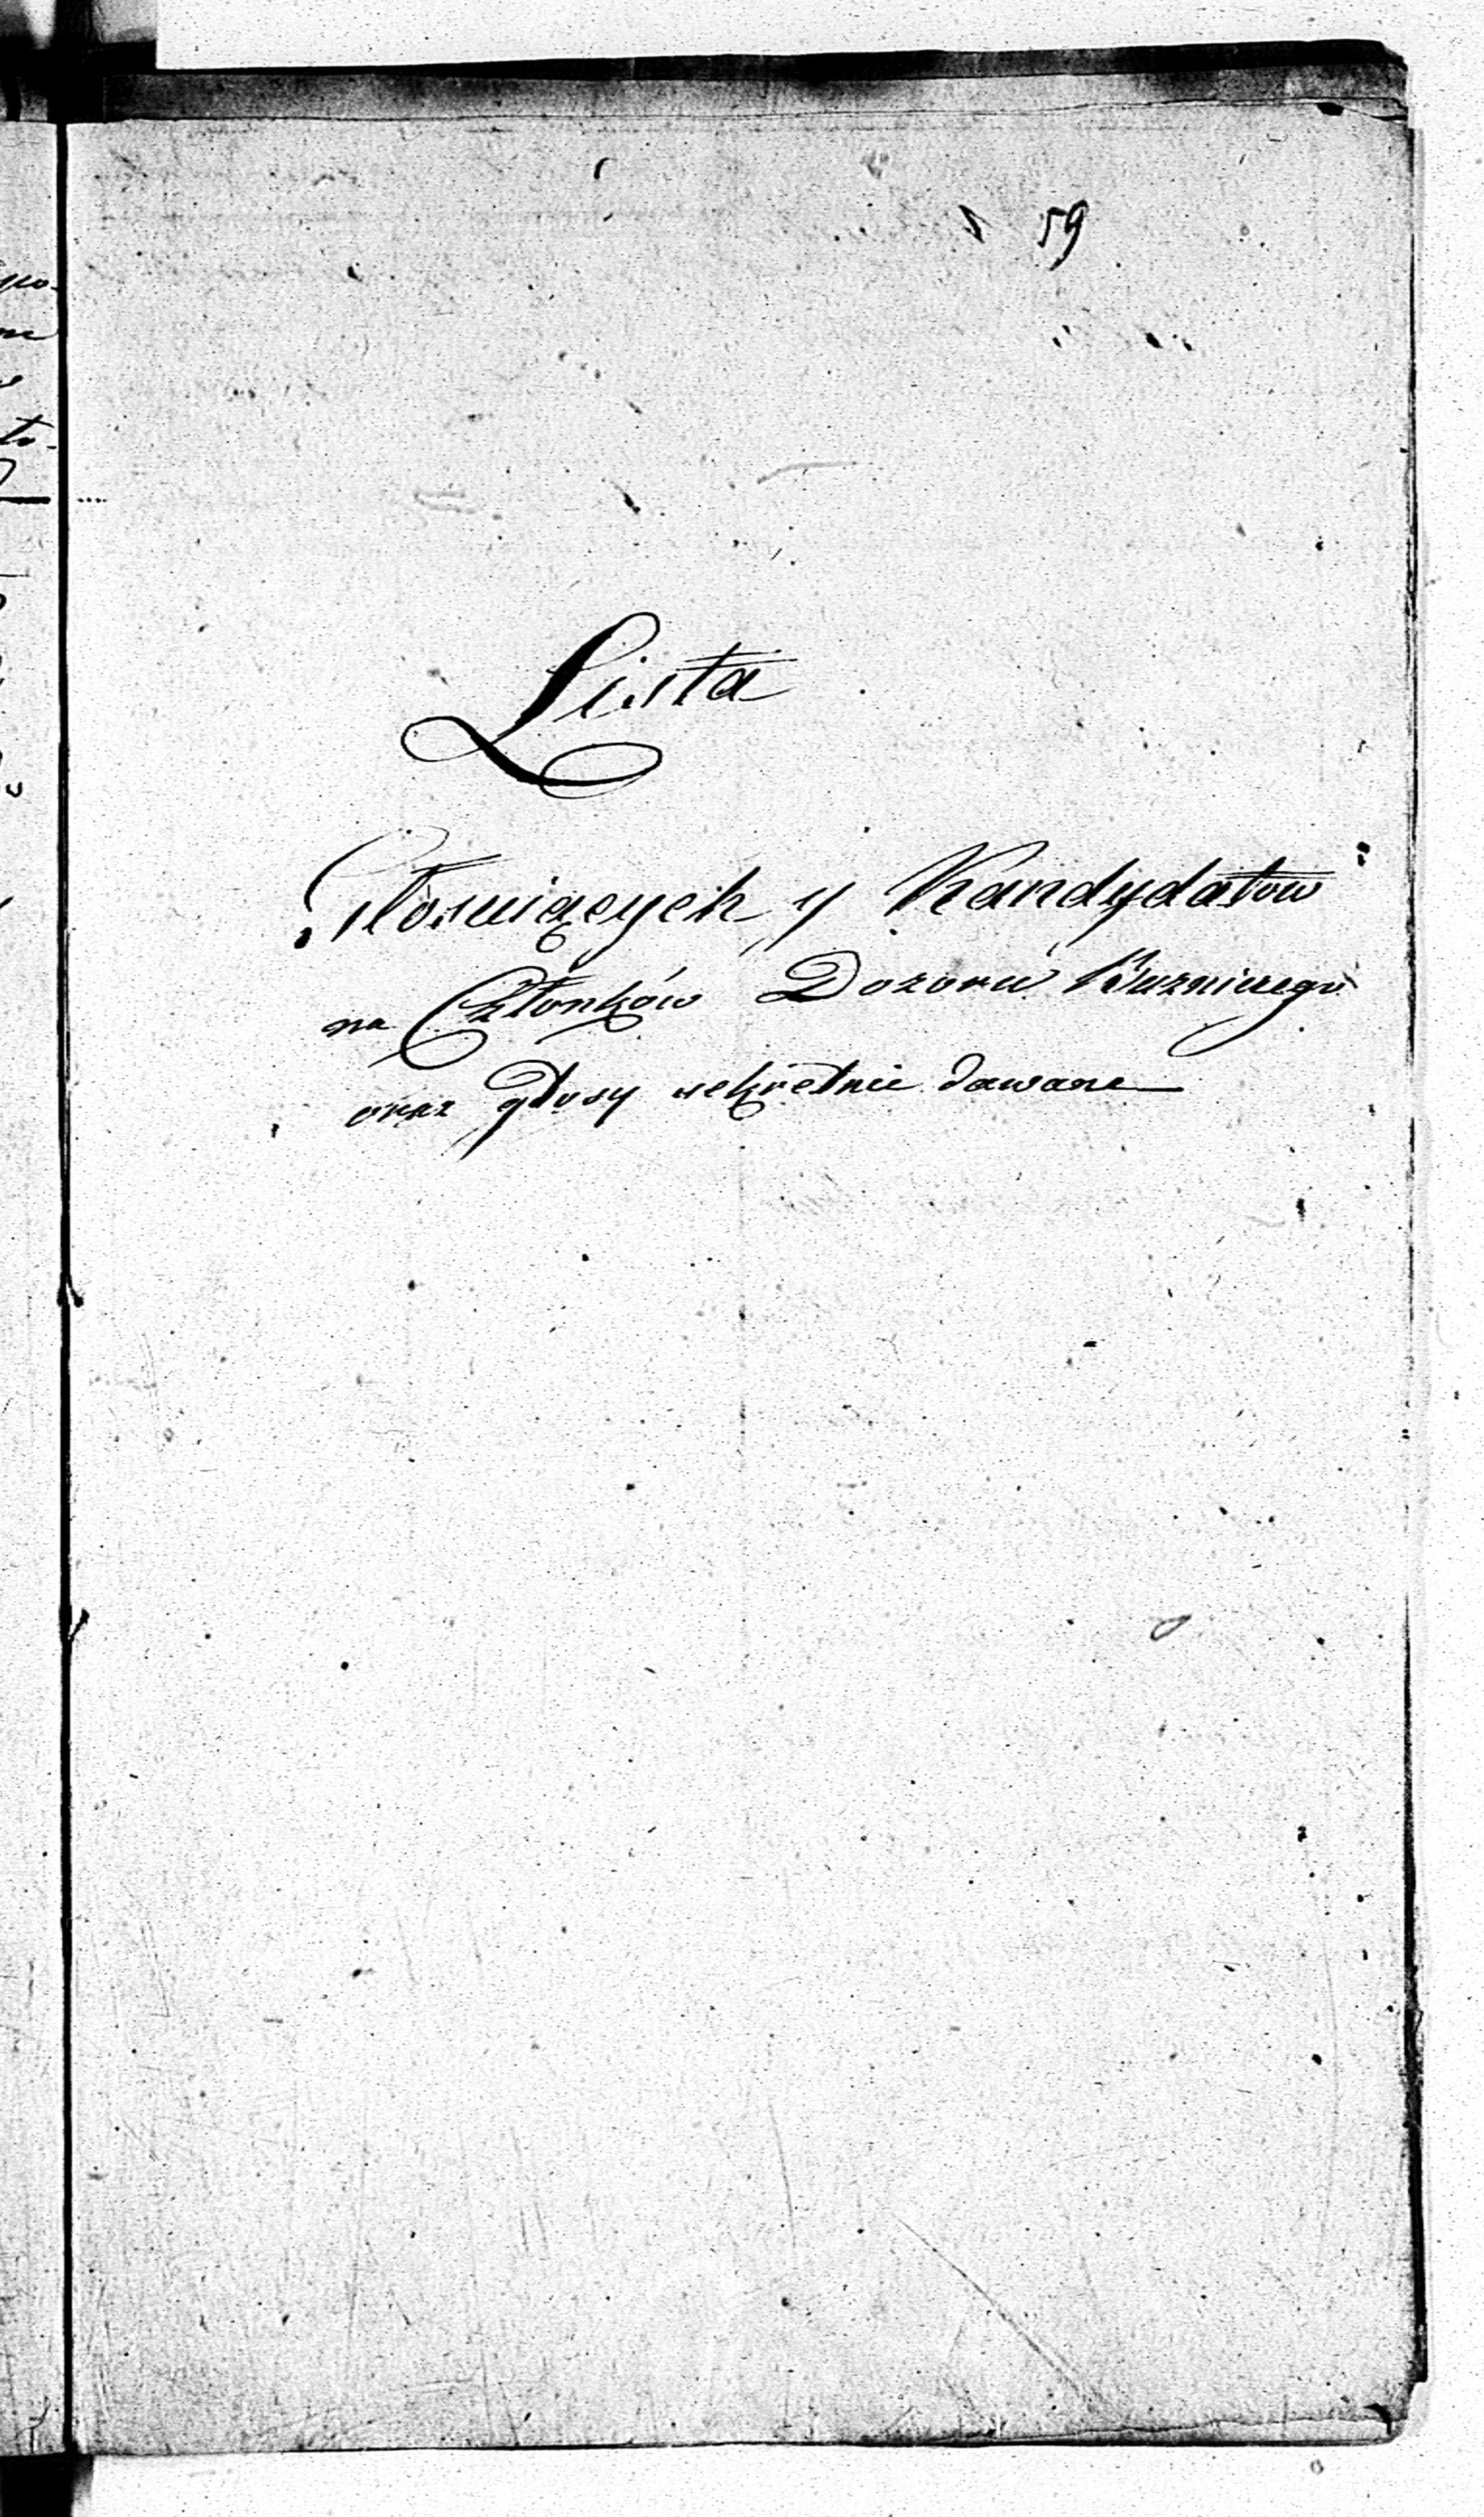 59
Lista
Głosuiących y Kandydatow
na Członków Dozoru Buzniczego
oraz głosy sekretnie dawane